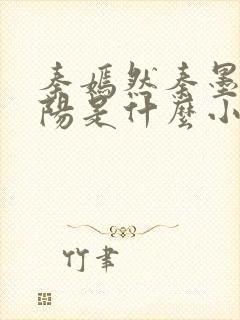 秦嫣然秦墨
陽是什麼小
竹聿